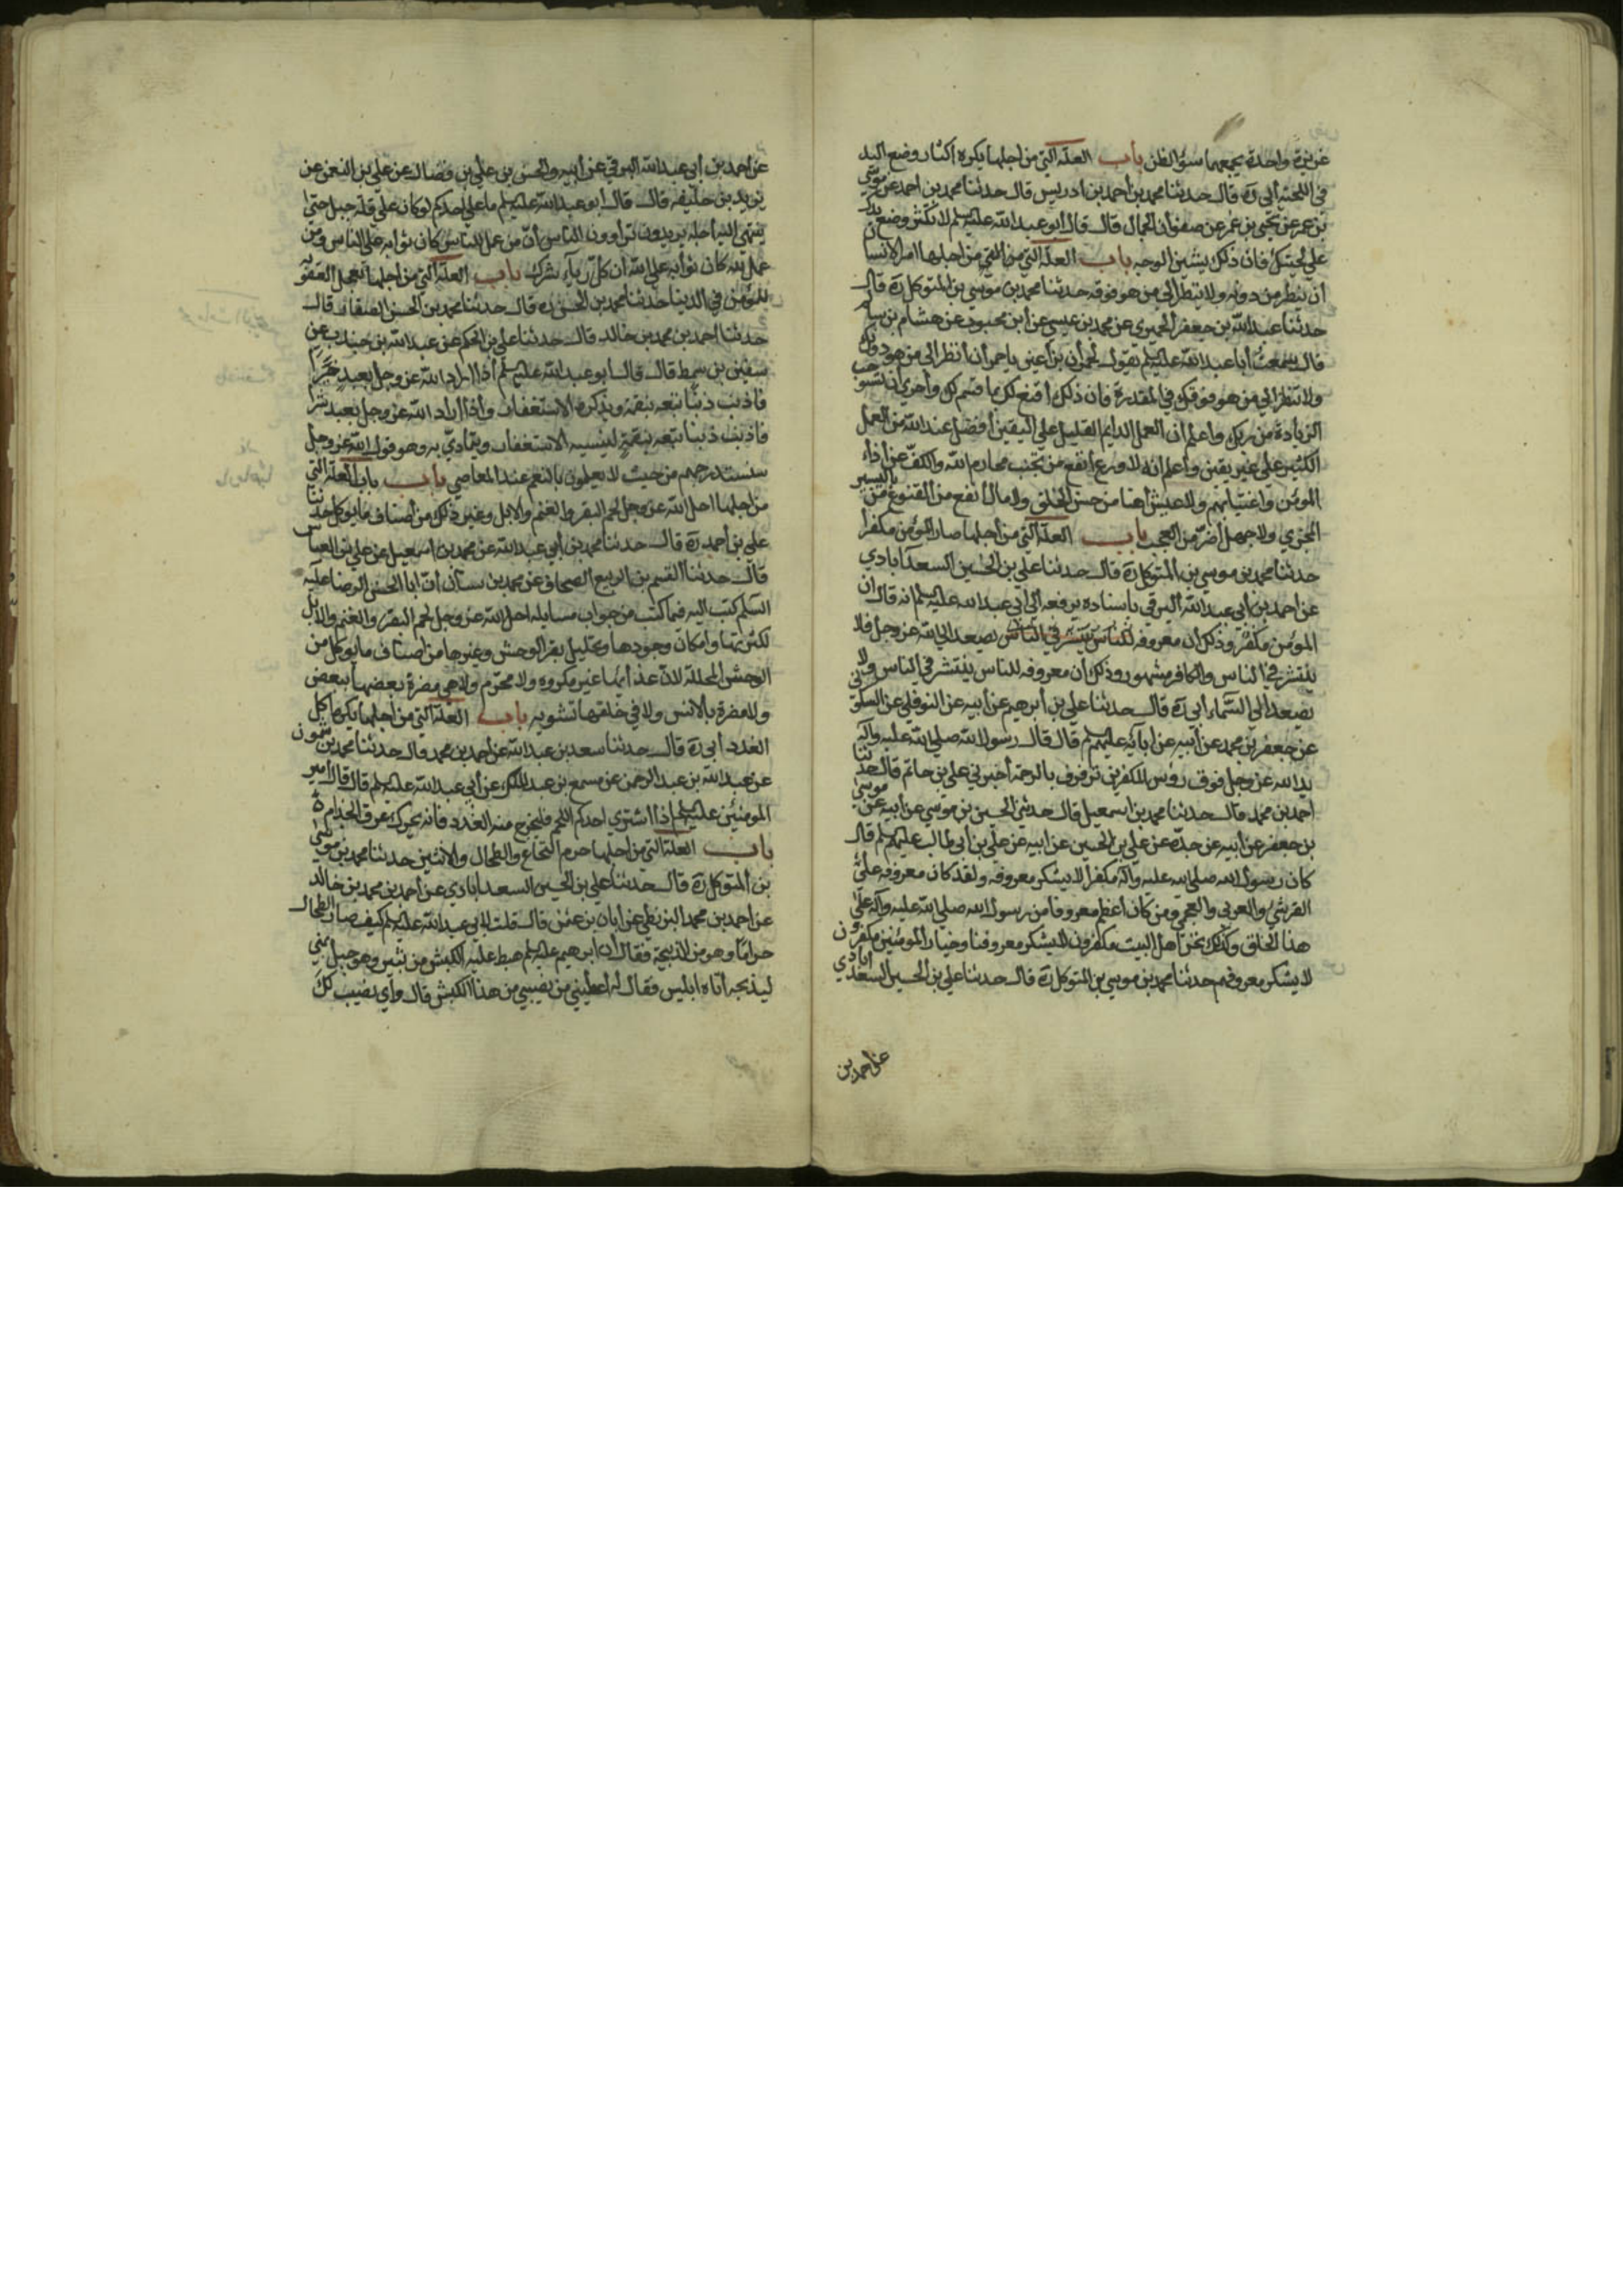 غريزة واحدة يجمعها سوء الظن باب العلة التي من اجلها يكره اكثار وضع اليد
في اللحية أبي ره قال حدثنا محمد بن أحمد بن ادريس قال حدثنا محمد بن احمد عن موسى
بن عمر عن يحيى بن عمر عن صفوان الجمال قال قال ابو عبد الله عليه السلم لا تكثر وضع يدك
على لحيتك فان ذلك يشين الوجه باب العلة التي من اجلها امر الانسان
أن ينظر من دونه ولا ينظر الي من هو فوقه حدثنا محمد بن موسى بن المتوكل ره قال
حدثنا عبد الله بن جعفر الحميري عن محمد بن عيسي عن ابن محبوب عن هشام بن سالم
قال سمعت أبا عبد الله عليه السلم يقول لحمران بن أعين يا حمران أنظر الي من هو دونك
ولا تنظر الي من هو فوقك في المقدرة فان ذلك أقنع لك بما قسم لك وأحري ان تستوجب
الزيادة من ربك واعلم ان العمل الدايم القليل علي اليقين أفضل عند الله من العمل
الكثير على غير يقين وأعلم انه لا ورع أنفع من تجنب محارم الله والكف عن أذاء
المؤمن واغتيابهم ولا عيش أهنا من حسن الخلق ولا مال أنفع من القنوع باليسير
المجزي ولا جهل أضر من العجب باب العلة التي من أجلها صار المؤمن مكفرا
حدثنا محمد بن موسي بن المتوكل ره قال حدثنا علي بن الحسين السعدآبادي
عن احمد بن أبي عبد الله البرقي باسناده يرفعه الي أبي عبد الله عليه السلم انه قال ان
المؤمن مكفر وذلك ان معروفه يصعد الي الله عز وجل فلا
ينتشر في الناس والكافر مشهور وذلك أن معروفه للناس ينتشر في الناس ولا
يصعد الي السماء أبي ره قال حدثنا علي بن أبرهيم عن أبيه عن النوفلي عن السكوني
عن جعفر بن محمد عن أبيه عن آبائه عليهم السلم قال قال رسول الله صلي الله عليه وآله
يد الله عز وجل فوق رؤس المكفرين ترفرف بالرحمة أخبرني علي بن حاتم قال حدثنا
احمد بن محمد قال حدثنا محمد بن اسمعيل قال حدثني الحسين بن موسي عن ابيه عن موسي
بن جعفر عن أبيه عن جده عن علي بن الحسين عن ابيه عن علي بن أبي طالب عليهم السلم قال
كان رسول الله صلي الله عليه وآله مكفرا لا يشكر معروفه ولقد كان معروفه علي
القرشي والعربي والعجمي ومن كان أعظم معروفا من رسول الله صلي الله عليه وآله علي
هذا الخلق وكذلك نحن اهل البيت مكفرون لا يشكر معروفنا وخيار المؤمنين مكفرون
لا يشكر معروفهم حدثنا محمد بن موسي بن المتوكل ره قال حدثنا علي بن الحسين السعدابادي
عن احمد بن
عن احمد بن أبي عبد الله البرقي عن أبيه والحسن بن علي بن فضال عن علي بن النعمن عن
يزيد بن خليفه قال قال أبو عبد الله عليه السلم ما علي أحدكم لو كان علي قلة جبل حتي
ينتهي اليه أجله يريدون تراؤون الناس أن من عمل للناس كان ثوابه علي الناس ومن
عمل لله كان ثوابه علي الله ان كل رياء شرك باب العلة التي من اجلها تعجل العقوبة
للمؤمن في الدنيا حدثنا محمد بن الحسن ره قال حدثنا محمد بن الحسن الصفار قال
حدثنا احمد بن محمد بن خالد قال حدثنا علي بن الحكم عن عبد الله بن جندب عن
سفين بن سمط قال قال ابو عبد الله عليه السلم أذا اراد الله عز وجل بعبد خيرا
فاذنب ذنبا تبعه بنقمة ويذكره الاستغفار وأذا اراد الله عز وجل بعبد شرا
فاذنب ذنبا تبعه بنقمة لينسيه الاستغفار ويتمادي به وهو قول الله عز وجل
سنستدرجهم من حيث لا يعلمون بالنعم عند المعاصي باب باب العلة التي
من اجلها احل الله عز وجل لحم البقر والغنم والابل وغير ذلك من أصناف ما يوكل حدثنا
علي بن أحمد ره قال حدثنا محمد بن أبي عبد الله عن محمد بن اسمعيل عن علي بن العباس
قال حدثنا القسم بن الربيع الصحاف عن محمد بن سنان أن ابا الحسن الرضا عليه
السلم كتب اليه فيما كتب من جواب مسايله احل الله عز وجل لحم البقر والغنم والابل
لكثرتها وامكان وجودها وتحليل بقر الوحش وغيرها من اصناف ما يوكل من
الوحش المحللة لان غذأيها غير مكروه ولا محرم ولا هي مضرة بعضها ببعض
ولا مضرة بالانس ولا في خلقها تشويه باب العلة التي من أجلها يكره اكل
الغدد أبي ره قال حدثنا سعد بن عبد الله عن احمد بن محمد قال حدثنا محمد بن شمون
عن عبد الله بن عبد الرحمن عن مسمع بن عبد الملك عن أبي عبد الله عليه السلم قال قال أمير
المومنين عليه السلم إذا اشتري احدكم اللحم فليخرج منه الغدد فانه يحرك عرق الجذام
باب العلة التي من أجلها حرم النخاع والطحال والأنثيين حدثنا محمد بن موسي
بن المتوكل ره قال حدثنا علي بن الحسين السعدابادي عن أحمد بن محمد بن خالد
عن احمد بن محمد البزنطي عن ابان بن عثمن قال قلت لابي عبد الله عليه السلم كيف صار الطحال
حراما وهو من الذبيحة فقال ان ابرهيم عليه السلم هبط عليه الكبش من ثبير وهو جبل بمني
ليذبحه أتاه ابليس فقال له أعطيني من نصيبي من هذا الكبش قال وأي نصيب لك